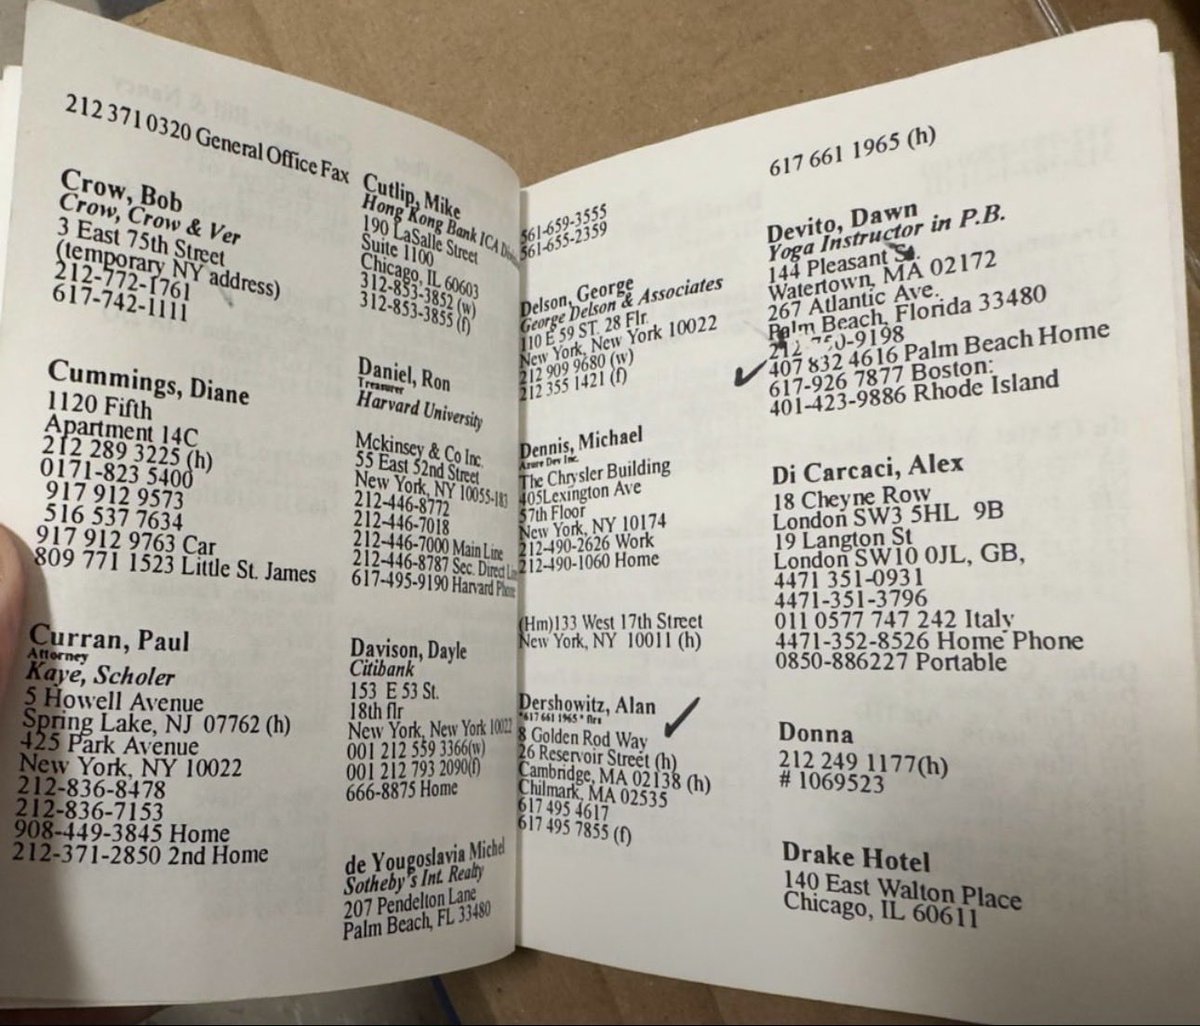 212 371 0320 General Office Fax
Crow, Bob
Crow, Crow & Ver
3 East 75th Street
(temporary NY address)
212-772-1761
617-742-1111
Cummings, Diane
1120 Fifth
Apartment 14C
212 289 3225 (h)
0171-823 5400
917 912 9573
516 537 7634
917 912 9763 Car
809 771 1523 Little St. James
Curran, Paul
Attorney
Kaye, Scholer
5 Howell Avenue
Spring Lake, NJ 07762 (h)
425 Park Avenue
New York, NY 10022
212-836-8478
212-836-7153
908-449-3845 Home
212-371-2850 2nd Home
Cutlip, Mike
Hong Kong Bank ICA
190 LaSalle Street
Suite 1100
Chicago, IL 60603
312-853-3852 (w)
312-853-3855 (f)
Daniel, Ron
Treasurer
Harvard University
Mckinsey & Co Inc.
55 East 52nd Street
New York, NY 10055-183
212-446-8772
212-446-7018
212-446-7000 Main Line
212-446-8787 Sec. Direct
617-495-9190 Harvard
Davison, Dayle
Citibank
153 E 53 St.
18th flr
New York, New York 10022
001 212 559 3366(w)
001 212 793 2090(f)
666-8875 Home
de Yougoslavia Michel
Sotheby's Int. Realty
207 Pendelton Lane
Palm Beach, FL 33480
561-659-3555
561-655-2359
Delson, George
George Delson & Associates
110 E 59 ST. 28 Flr.
New York, New York 10022
212 909 9680 (w)
212 355 1421 (f)
Dennis, Michael
Azure Dev Inc.
The Chrysler Building
405Lexington Ave
57th Floor
New York, NY 10174
212-490-2626 Work
212-490-1060 Home
(Hm)133 West 17th Street
New York, NY 10011 (h)
Dershowitz, Alan
*617 661 1965 *
8 Golden Rod Way
26 Reservoir Street (h)
Cambridge, MA 02138 (h)
Chilmark, MA 02535
617 495 4617
617 495 7855 (f)
617 661 1965 (h)
Devito, Dawn
Yoga Instructor in P.B.
144 Pleasant St.
Watertown, MA 02172
267 Atlantic Ave.
Palm Beach, Florida 33480
407 832 4616 Palm Beach Home
617-926 7877 Boston:
401-423-9886 Rhode Island
Di Carcaci, Alex
18 Cheyne Row
London SW3 5HL 9B
19 Langton St
London SW10 0JL, GB,
4471 351-0931
4471-351-3796
011 0577 747 242 Italy
4471-352-8526 Home Phone
0850-886227 Portable
Donna
212 249 1177(h)
# 1069523
Drake Hotel
140 East Walton Place
Chicago, IL 60611